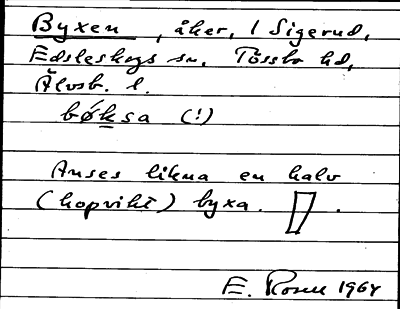 Byxen, åker, 1 Sigerud,
Edsleskogs sn. Tössbo hd,
Älvsb. l.
bøksa (!)
Anses likna en halv
(hopvikt) byxa.
E. Rosell 1964